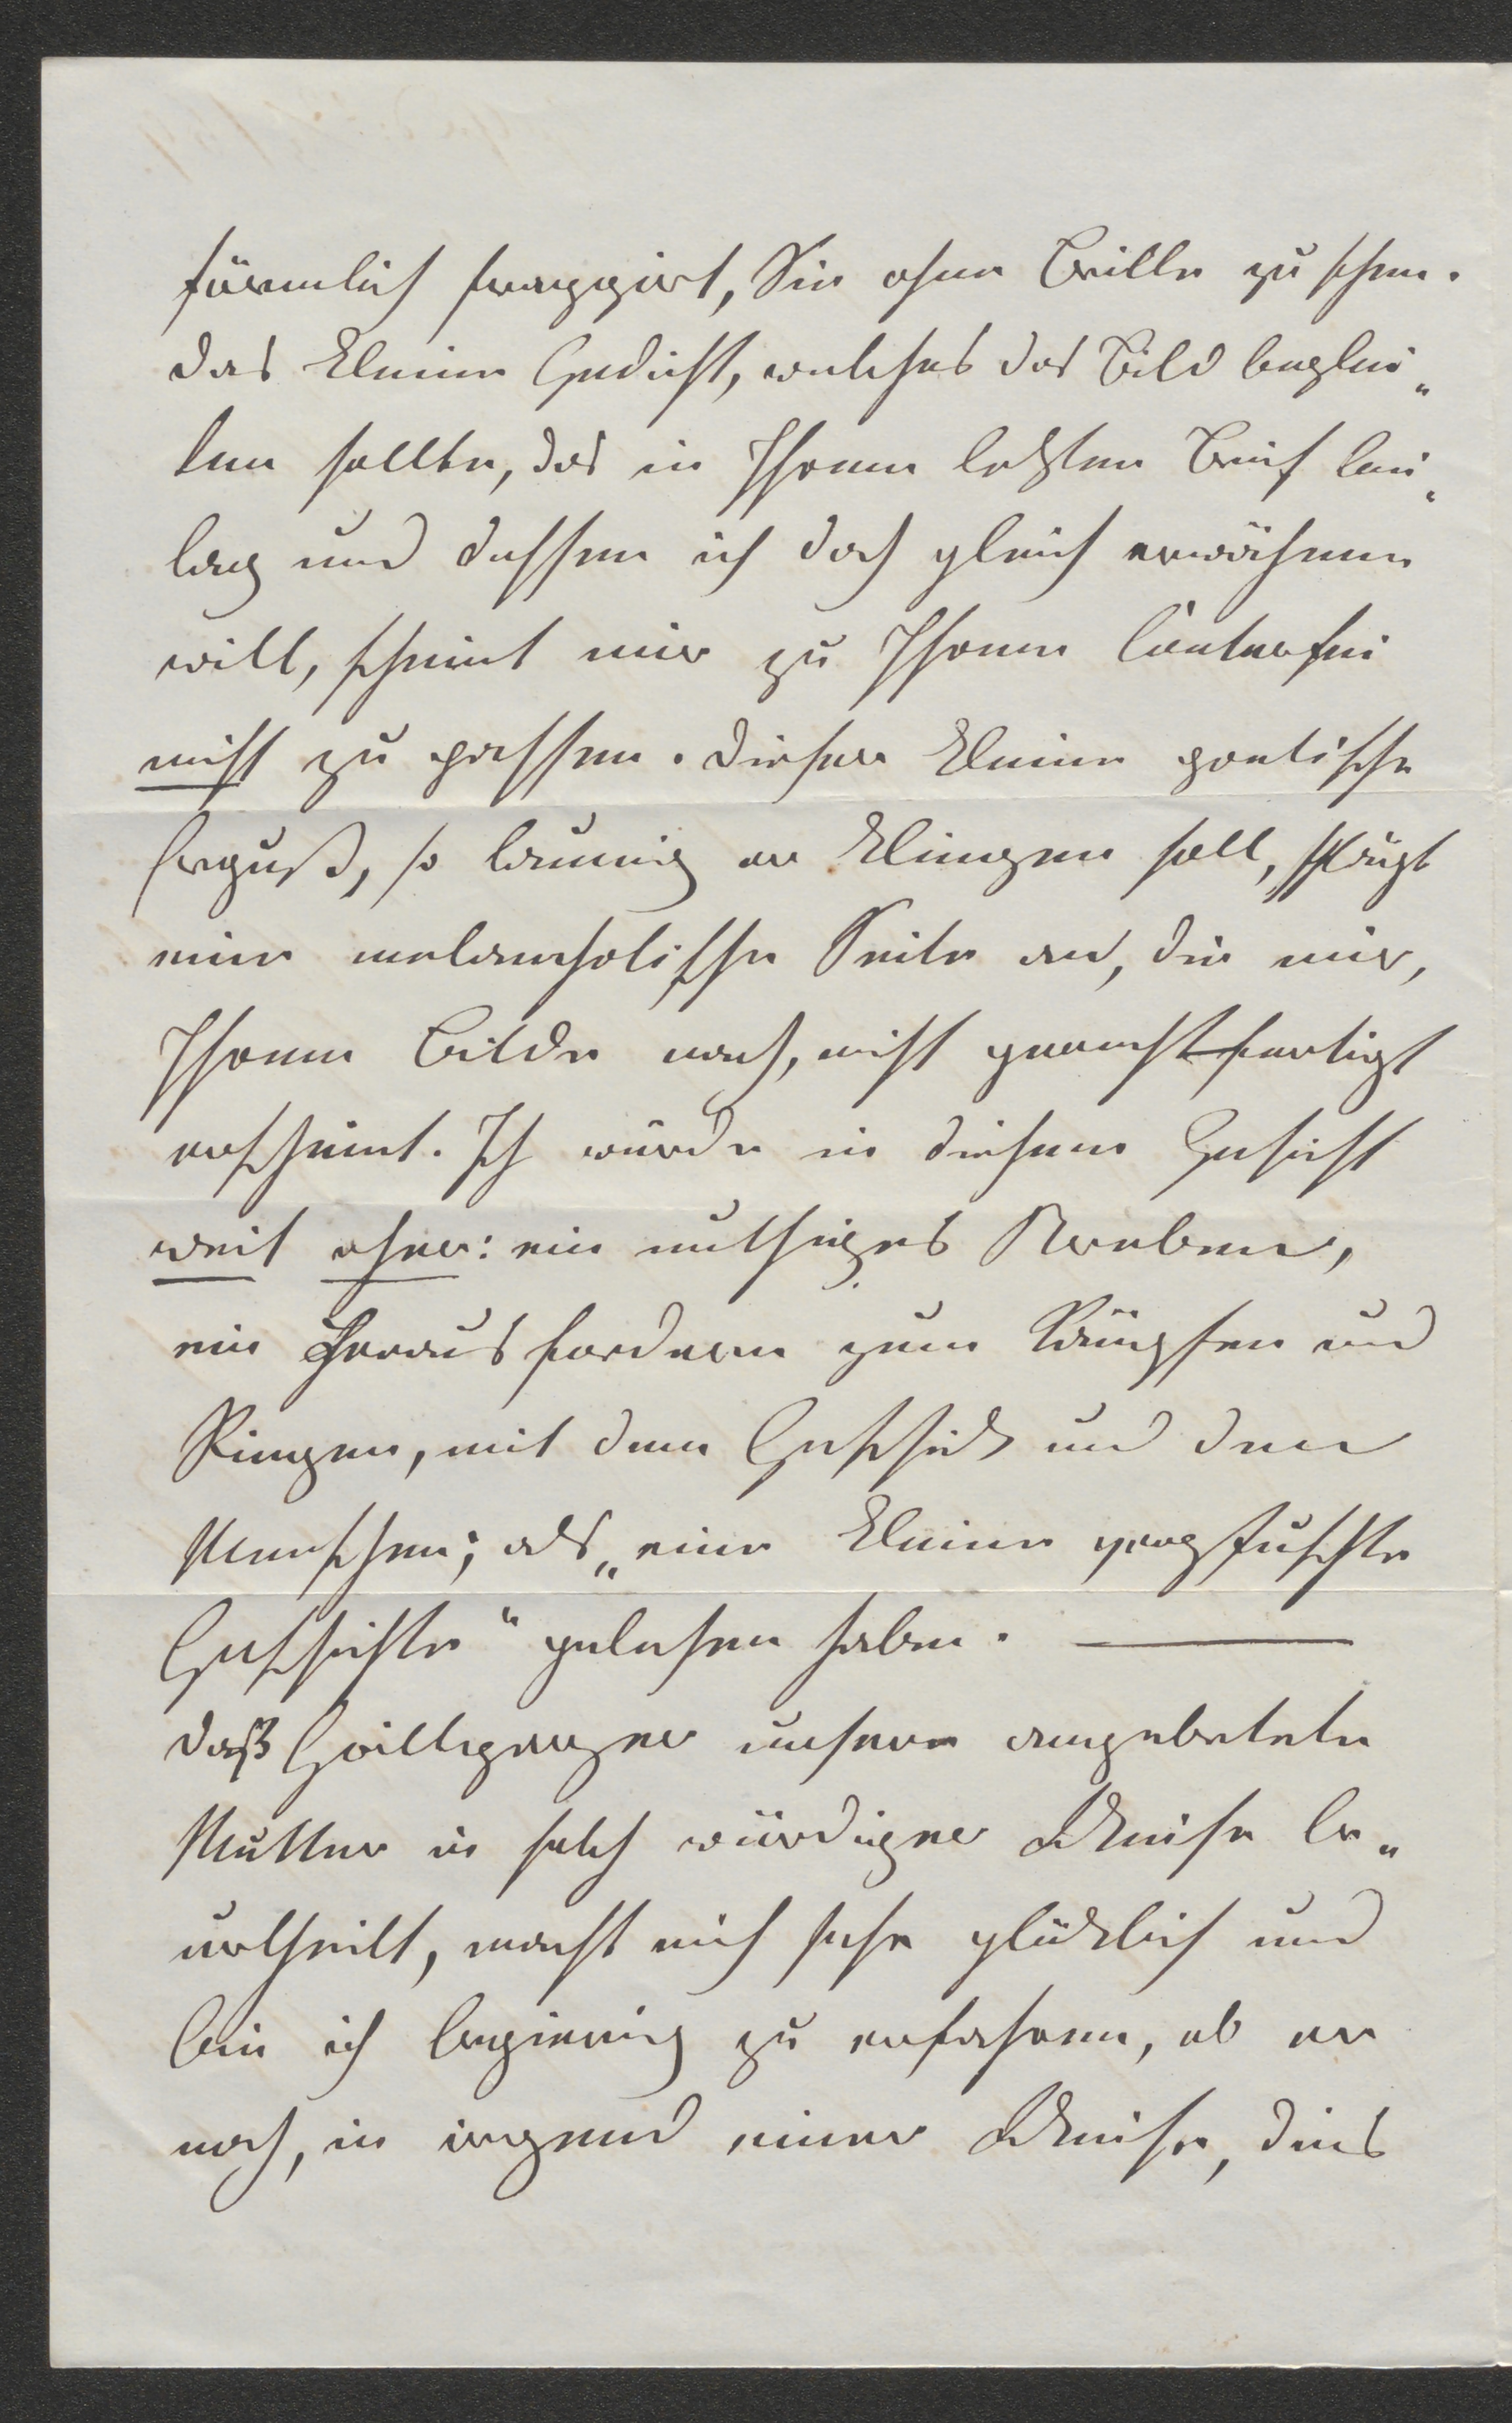 förmlich frappirt, Sie ohne Brille zu sehen.
das kleine Gedicht, welches das Bild beglei„
ten sollte, das in Ihrem letzten Brief bei„
lag und dessen ich doch gleich erwähnen
will, scheint mir zu Ihrem Conterfei
nicht zu passen. dieser kleine poetische
Erguß, so launig er klingen soll, schlägt
eine melancholische Seite an, die mir,
Ihrem Bilde nach, nicht gerechtfertigt
erscheint. Ich würde in diesem Gesicht
weit eher: ein muthiges Streben,
ein Herausfordern zum Kämpfen und
Ringen, mit dem Geschick und den
Menschen; als „eine kleine verpfuschte
Geschichte“ gelesen haben. —
daß Grillparzer unsere angebetete
Mutter in solch würdiger Weise be„
urtheilt, macht mich sehr glücklich und
bin ich begierig zu erfahren, ob er
noch, in irgend einer Weise, dies